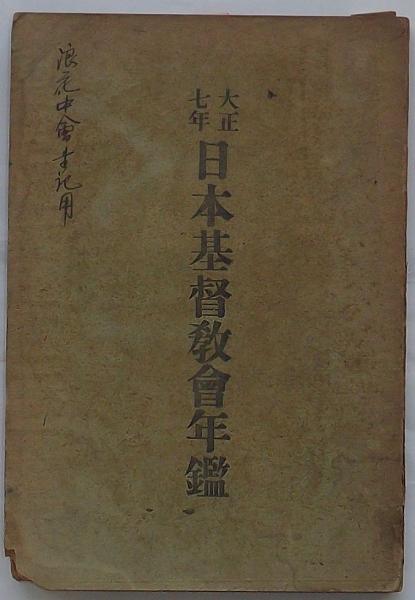 大正
七年
日本基督敎會年鑑
浪花中會書記用